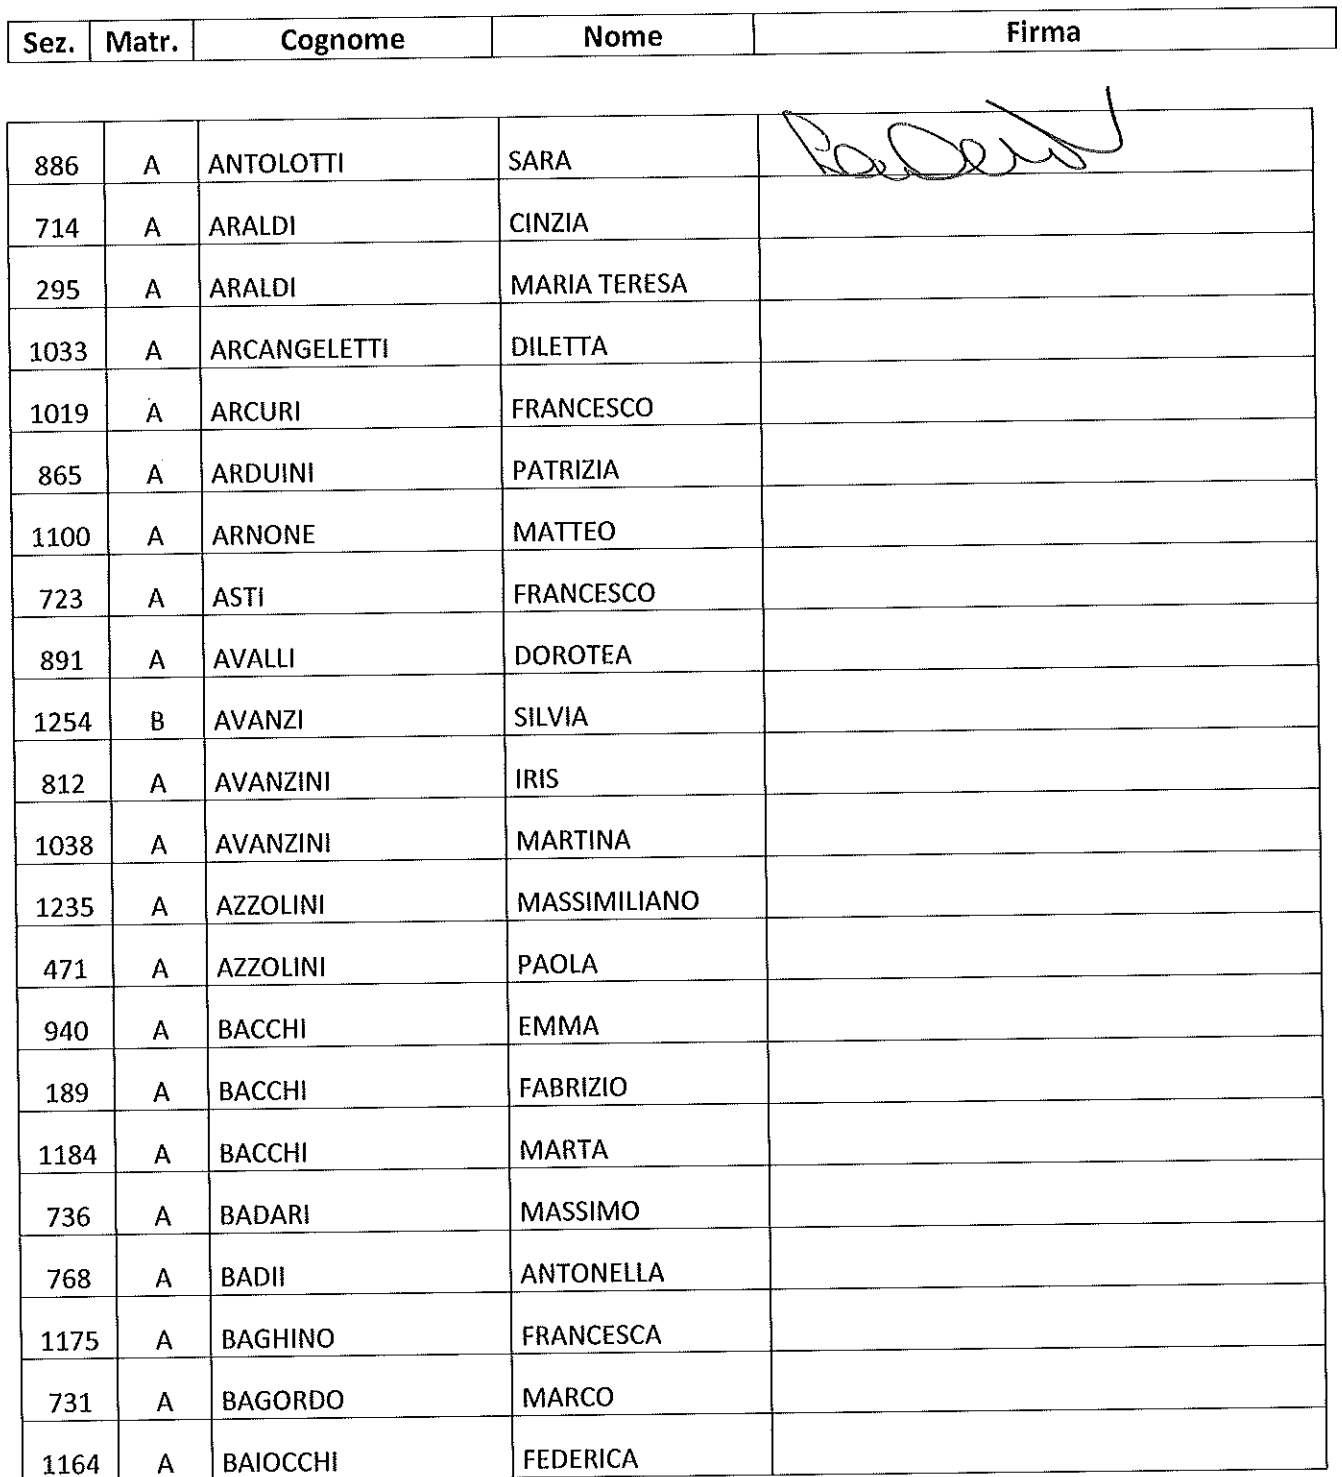 Sez. Matr. Cognome Nome Firma
886 A ANTOLOTTI SARA
714 A ARALDI CINZIA
295 A ARALDI MARIA TERESA
1033 A ARCANGELETTI DILETTA
1019 A ARCURI FRANCESCO
865 A ARDUINI PATRIZIA
1100 A ARNONE MATTEO
723 A ASTI FRANCESCO
891 A AVALLI DOROTEA
1254 B AVANZI SILVIA
812 A AVANZINI IRIS
1038 A AVANZINI MARTINA
1235 A AZZOLINI MASSIMILIANO
471 A AZZOLINI PAOLA
940 A BACCHI EMMA
189 A BACCHI FABRIZIO
1184 A BACCHI MARTA
736 A BADARI MASSIMO
768 A BADII ANTONELLA
1175 A BAGHINO FRANCESCA
731 A BAGORDO MARCO
1164 A BAIOCCHI FEDERICA